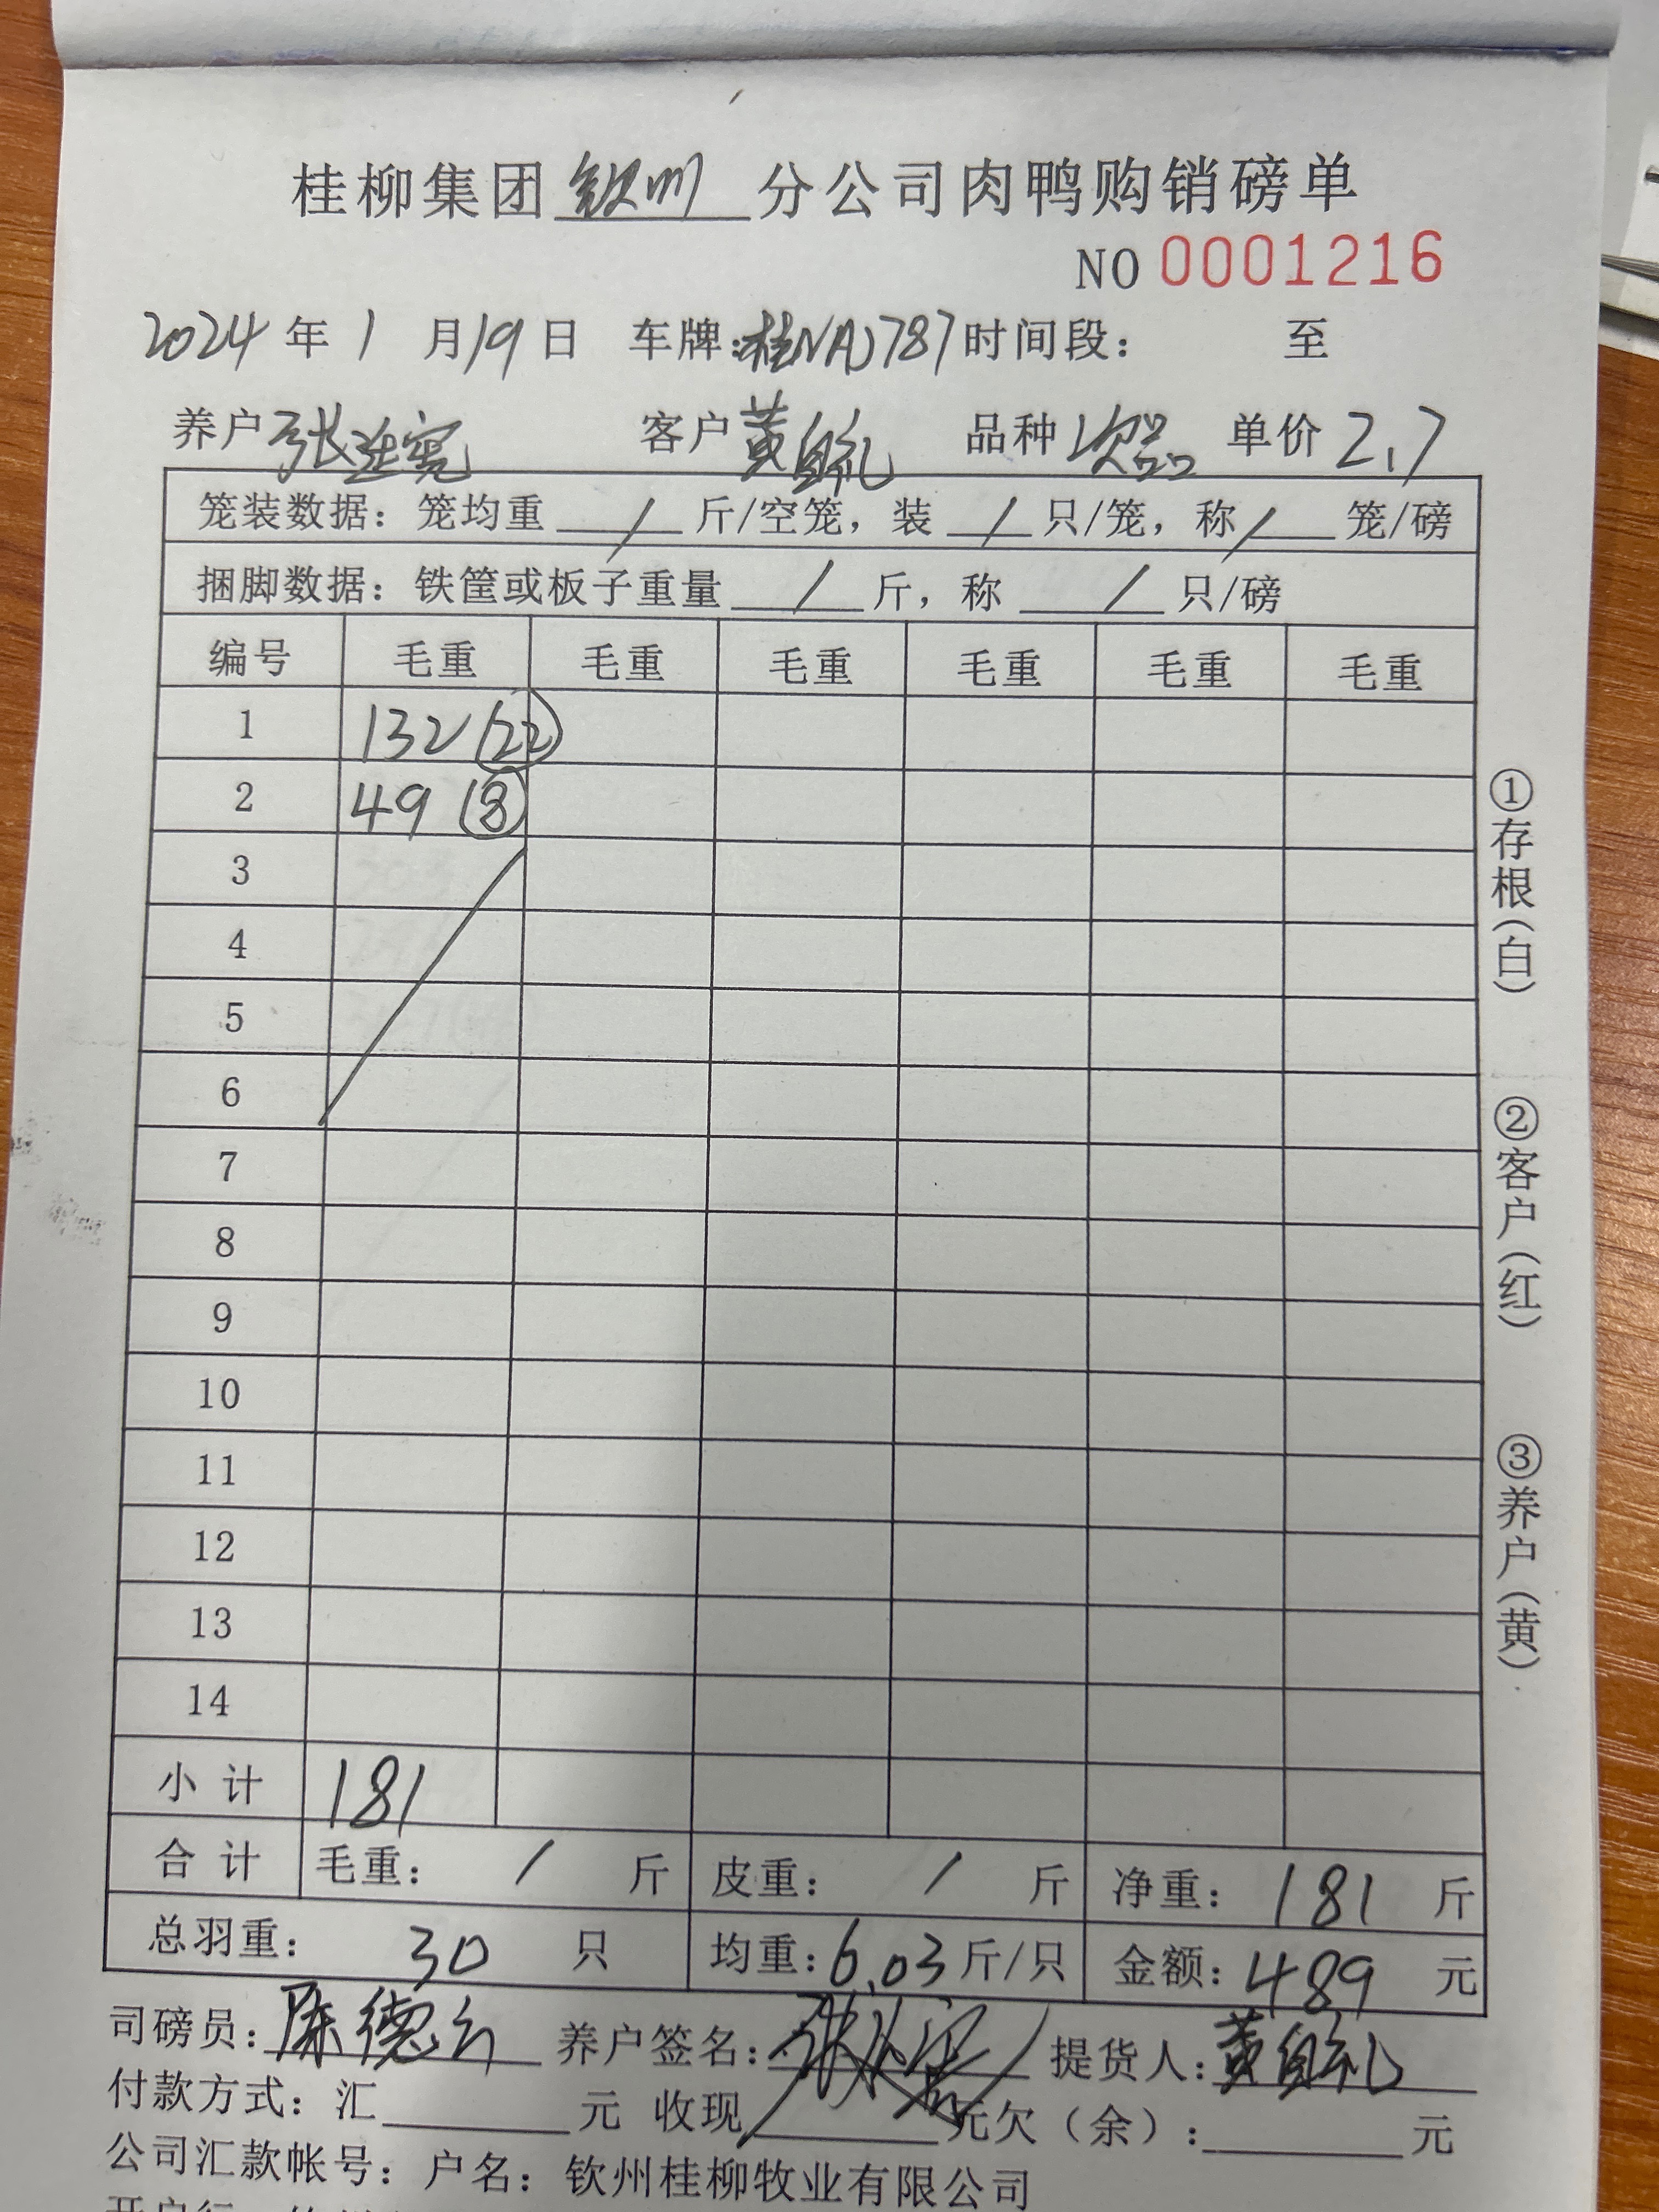 桂柳集团钦州分公司肉鸭购销磅单
NO 0001216
2024年1月19日 车牌:桂NAJ787时间段: 至
养户张廷宽 客户黄自礼 品种次品 单价2.7
笼装数据:笼均重 / 斤/空笼,装 / 只/笼,称 / 笼/磅
捆脚数据:铁筐或板子重量 / 斤,称 / 只/磅
编号 毛重 毛重 毛重 毛重 毛重 毛重
1 132 (22)
2 49 (8)
3
4
5
6
7
8
9
10
11
12
13
14
小计 181
合计 毛重: / 斤 皮重: / 斤 净重: 181 斤
总羽重: 30 只 均重:6.03斤/只 金额:489 元
司磅员:陈德云 养户签名: 提货人:黄自礼
付款方式:汇 元 收现 元欠(余): 元
公司汇款帐号:户名:钦州桂柳牧业有限公司
①存根(白)
②客户(红)
③养户(黄)